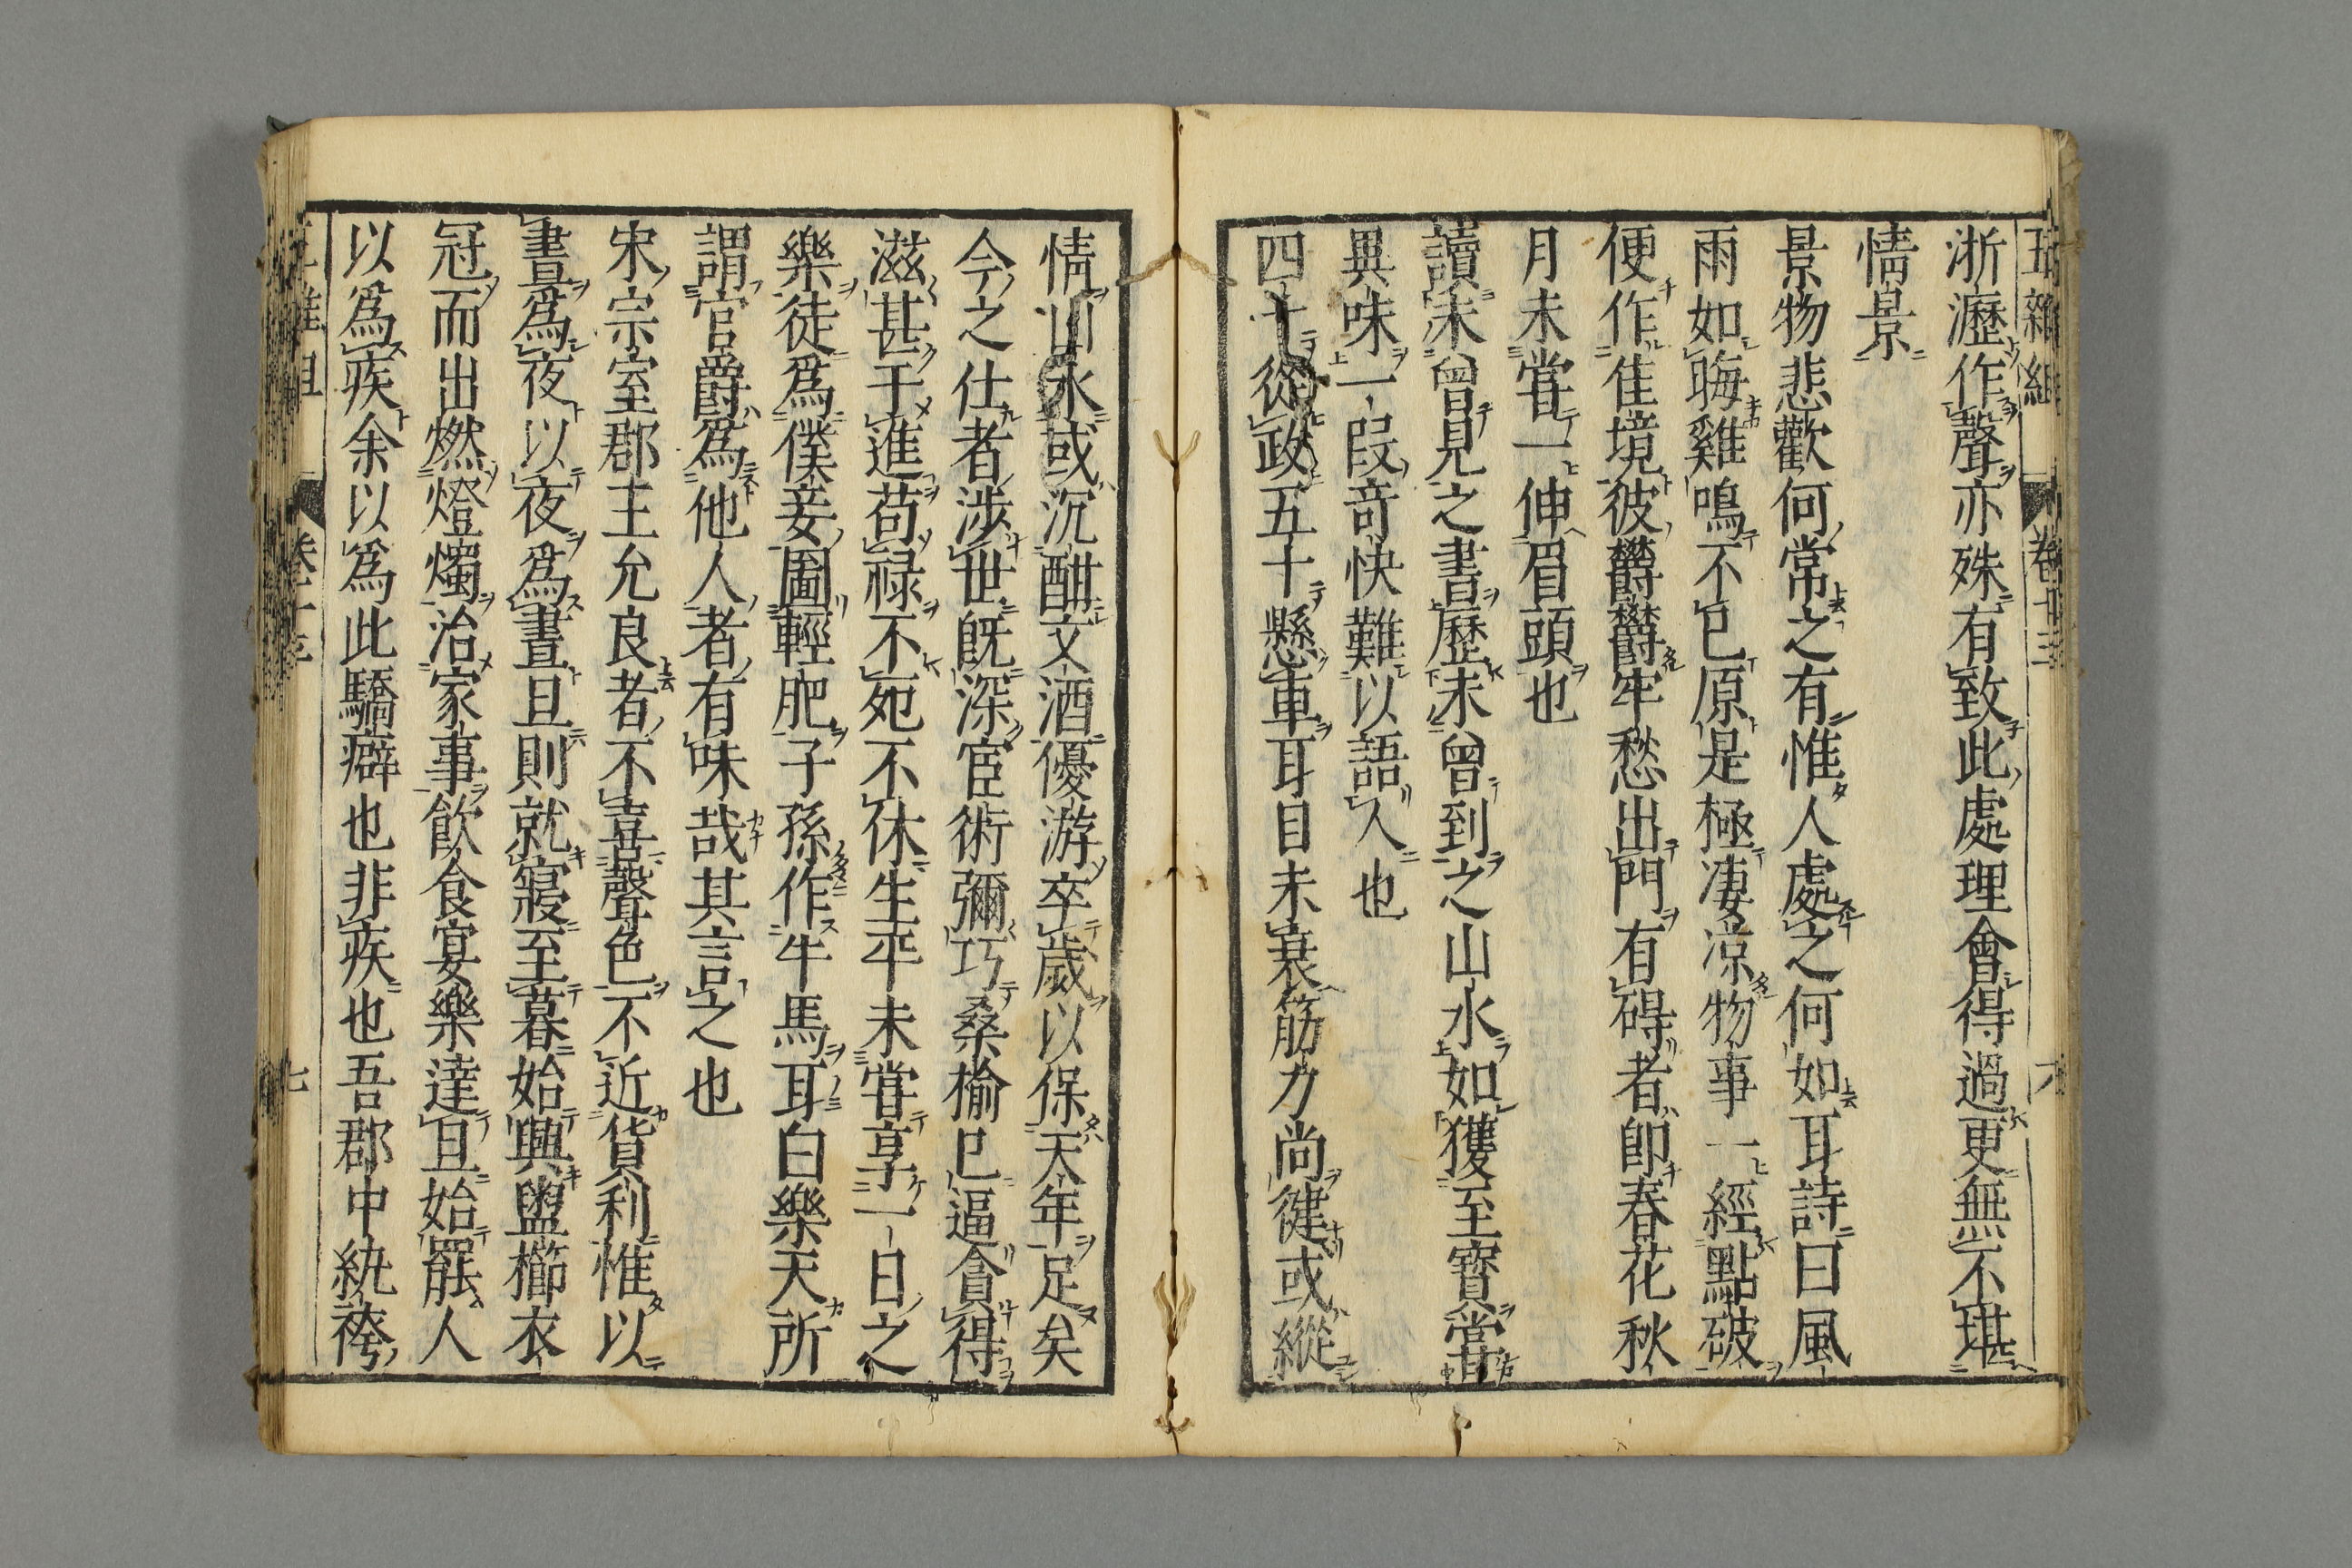 五雜組 卷十三 六
浙瀝作聲亦殊有致此處理會得過更無不堪
情景
景物悲歡何常之有惟人處之何如耳詩曰風
雨如晦雞鳴不已原是極凄凉物事一經點破
便作佳境彼欝欝牢愁出門有碍者卽春花秋
月未甞一伸眉頭也
讀未曾見之書歷未曾到之山水如獲至寶甞
異味一叚竒快難以語人也
四十從政五十懸車耳目未衰筋力尚健或縱
情山水或沉酣文酒優游卒歲以保天年足矣
今之仕者涉世旣深宦術彌巧桑榆已逼貪得
滋甚干進苟禄不死不休生平未甞享一日之
樂徒爲僕妾圖輕肥子孫作牛馬耳白樂天所
謂官爵爲他人者有味哉其言之也
宋宗室郡王允良者不喜聲色不近貨利惟以
晝爲夜以夜爲晝旦則就寢至暮始興盥櫛衣
冠而出燃燈燭治家事飲食宴樂達旦始罷人
以爲疾余以爲此驕癖也非疾也吾郡中紈袴
雜組 卷十三 七